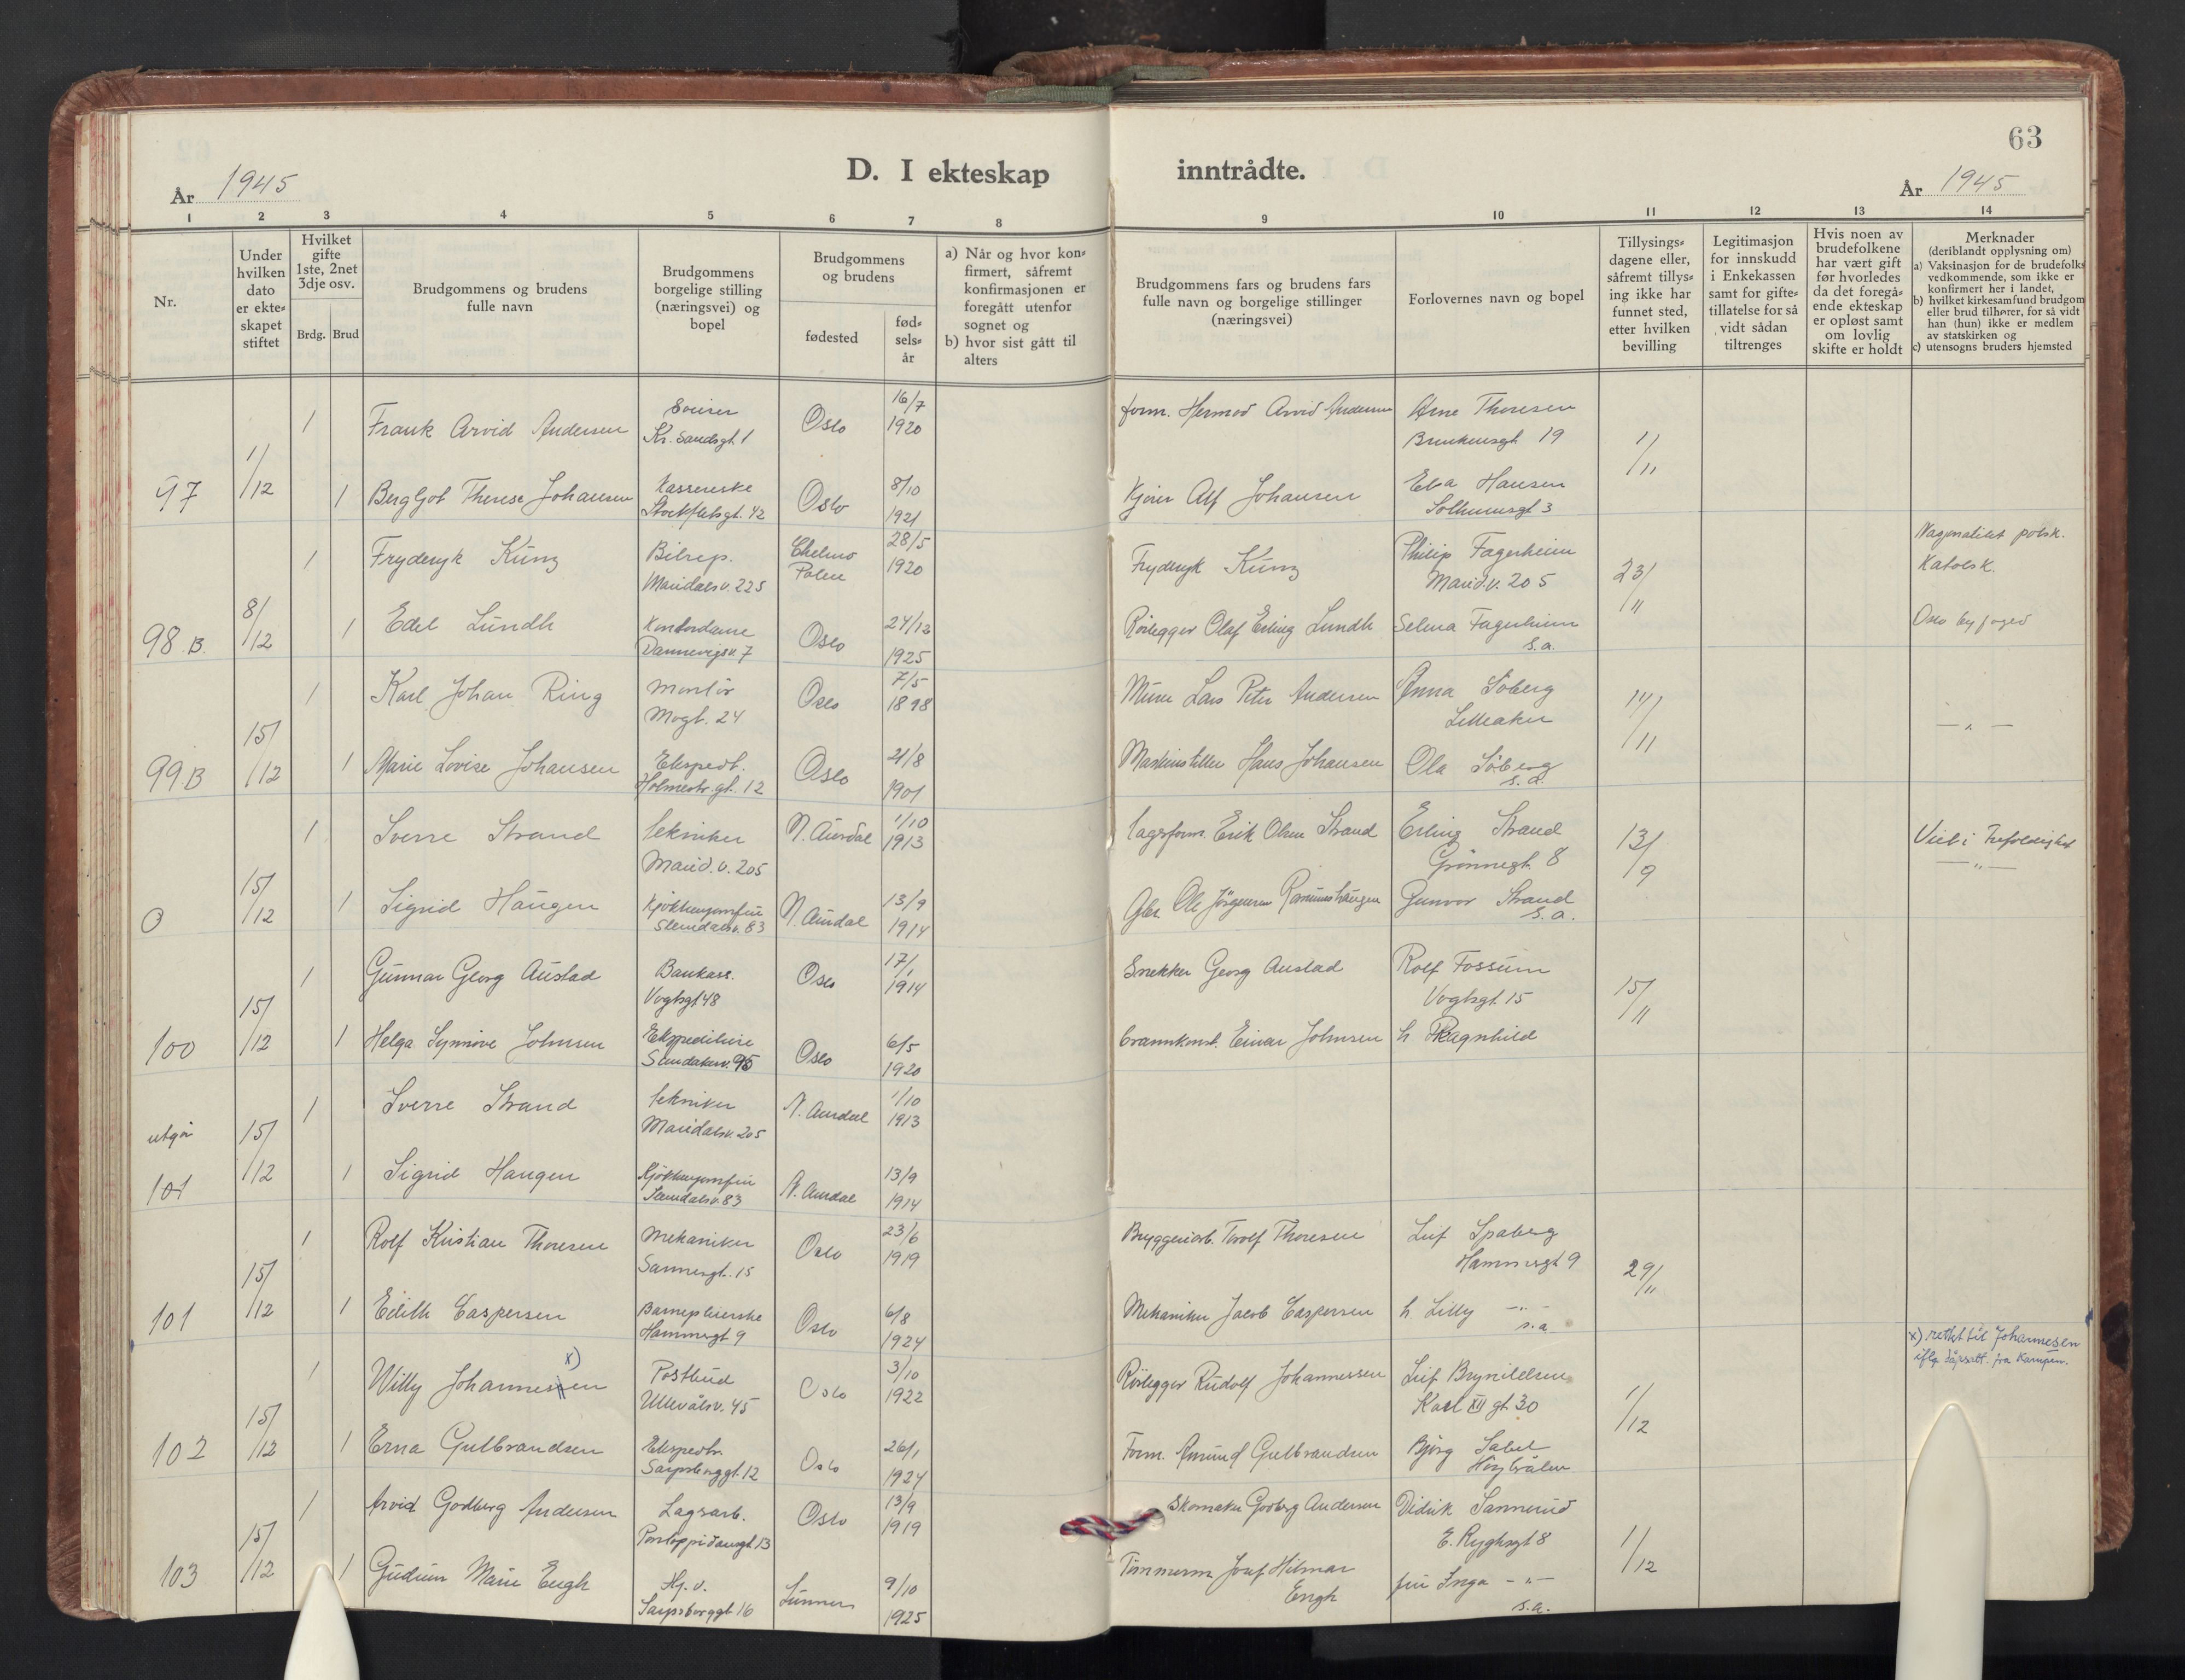 63
D. I ekteskap inntrådte.
År 1945
År 1945
1 2 3 4 5 6 7 8 9 10 11 12 13 14
Nr.
Under hvilken dato er ekte= skapet stiftet
Hvilket gifte 1ste, 2net 3dje osv.
Brdg. Brud
Brudgommens og brudens fulle navn
Brudgommens borgelige stilling (næringsvei) og bopel
Brudgommens og brudens
fødested
fød= sels= år
a) Når og hvor kon= firmert, såfremt konfirmasjonen er foregått utenfor sognet og
b) hvor sist gått til alters
Brudgommens fars og brudens fars fulle navn og borgelige stillinger (næringsvei)
Forlovernes navn og bopel
Tillysings= dagene eller, såfremt tillys= ing ikke har funnet sted, etter hvilken bevilling
Legitimasjon for innskudd i Enkekassen samt for gifte= tillatelse for så vidt sådan tiltrenges
Hvis noen av brudefolkene har vært gift før hvorledes da det foregå= ende ekteskap er opløst samt om lovlig skifte er holdt
Merknader (deriblandt opplysning om)
a) Vaksinasjon for de brudefolks vedkommende, som ikke er konfirmert her i landet,
b) hvilket kirkesamfund brudgom eller brud tilhører, for så vidt han (hun) ikke er medlem av statskirken og
c) utensogns bruders hjemsted
1 Frank Arvid Andersen Kr. Sandsgt. 1 Oslo 16/7 1920 form. Hermod Arvid Andersen Arne Thoresen 19
97 1/12 1 Bergljot Therese Johansen Kassererske 42 Oslo 8/10 1921 Kjører Alf Johansen Eva Hansen 3 1/11
1 Fryderyk Kunz Bilrep. Maridalsv. 225 Chelmo Polen 28/5 1920 Fryderyk Kunz Philip Fagerheim Marid.v. 205 23/11 Nasjonalitet polsk. Katolsk.
98 B. 8/12 1 Edel Lundh Kontordame Dannevigsv. 7 Oslo 24/12 1925 Rørlegger Olaf Erling Lundh Selma Fagerheim s.a. Oslo byfoged
1 Karl Johan Ring Montør Mogt. 24 Oslo 7/5 1898 Murer Lars Peter Andersen Anna Søberg Lilleaker 14/11 — " —
99 B 15/12 1 Marie Lovise Johansen Ekspedt. Holmestr.gt. 12 Oslo 21/8 1901 Maskinstiller Hans Johansen Ola Søberg s.a.
1 Sverre Strand tekniker Marid.v. 205 N. Aurdal 1/10 1913 lagerform. Erik Olsen Strand Erling Strand Grønnegt. 8 13/9 Viet i Trefoldighet — " —
0 15/12 1 Sigrid Haugen Kjøkkenjomfru Slemdalsv. 83 N. Aurdal 13/9 1914 Ole Jørgensen Gunvor Strand s.a.
1 Gunnar Georg Austad Bankass. Vogtsgt 48 Oslo 17/1 1914 Snekker Georg Austad Rolf Fossum Vogtsgt. 15 15/11
100 15/12 1 Helga Synnøve Johnsen Ekspeditrise Sandakerv. 95 Oslo 6/5 1920 brannkonst. Einar Johnsen h. Ragnhild
1 Sverre Strand tekniker Maridalsv. 205 N. Aurdal 1/10 1913
utgår 101 15/12 1 Sigrid Haugen Kjøkkenjomfru Slemdalsv. 83 N. Aurdal 13/9 1914
1 Rolf Kristian Thoresen Mekaniker Sannergt. 15 Oslo 23/6 1919 Bryggeriarb. Torolf Thoresen Leif Spaberg Hammersgt 9 29/11
101 15/12 1 Edith Caspersen Barnepleierske Hammersgt 9 Oslo 6/8 1924 Mekaniker Jacob Caspersen h. Lilly — " — s.a.
1 Willy Johannessen x) Postbud Ullevålsv. 45 Oslo 3/10 1922 Rørlegger Rudolf Johannessen Leif Brynildsen Karl XII gt 30 1/12 x) rettet til Johannesen iflg. dåpsatt. fra Kampen.
102 15/12 1 Erna Gulbrandsen Ekspedtr. Sarpsborggt. 12 Oslo 26/1 1924 Form. Amund Gulbrandsen Bjørg Høybråten
1 Arvid Godberg Andersen Lagerarb. 13 Oslo 13/9 1919 Skomaker Godberg Andersen Didrik Sannerud E. Ryghsgt 8 1/12
103 15/12 1 Gudrun Marie Engh Hj. v. Sarpsborggt 16 Lunner 9/10 1925 Tømmerm Josef Hilmar Engh fru Inga — " — s.a.